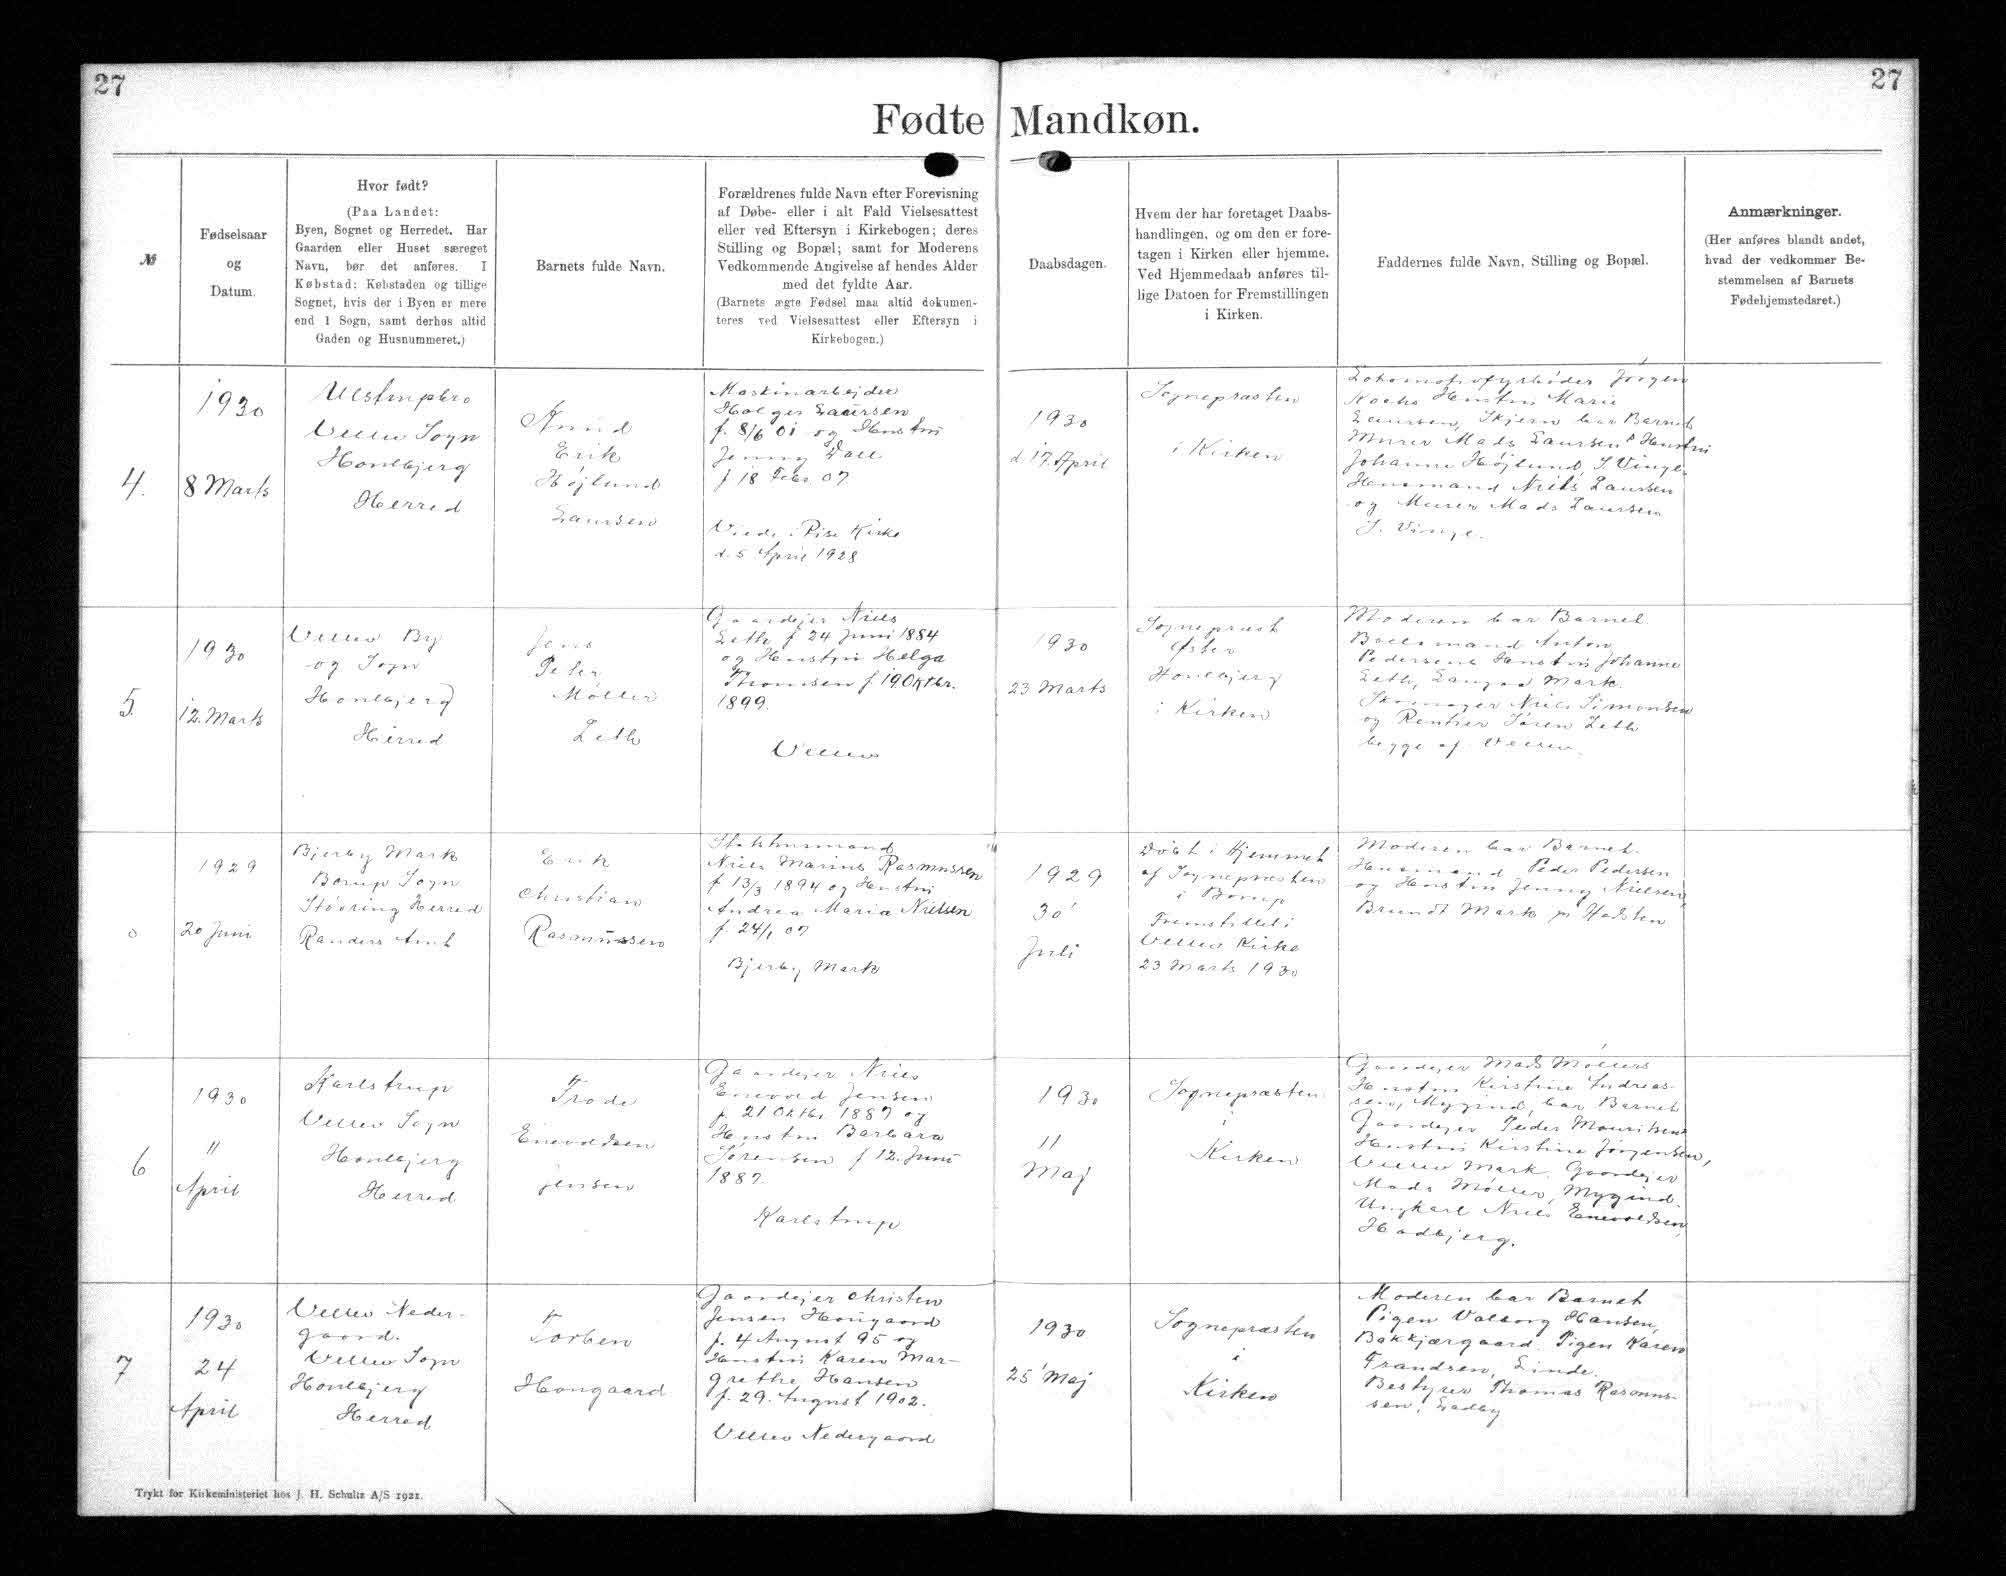 27
27
Fødte Mandkøn.
№
Fødselsaar
og
Datum.
Hvor født?
(Paa Landet:
Byen, Sognet og Herredet. Har
Gaarden eller Huset særeget
Navn, bør det anføres. I
Købstad: Købstaden og tillige
Sognet, hvis der i Byen er mere
end 1 Sogn, samt derhos altid
Gaden og Husnummeret.)
Barnets fulde Navn.
Forældrenes fulde Navn efter Forevisning
af Døbe- eller i alt Fald Vielsesattest
eller ved Eftersyn i Kirkebogen; deres
Stilling og Bopæl; samt for Moderens
Vedkommende Angivelse af hendes Alder
med det fyldte Aar.
(Barnets ægte Fødsel maa altid dokumen-
teres ved Vielsesattest eller Eftersyn i
Kirkebogen.)
Daabsdagen.
Hvem der har foretaget Daabs-
handlingen, og om den er fore-
tagen i Kirken eller hjemme.
Ved Hjemmedaab anføres til-
lige Datoen for Fremstillingen
i Kirken.
Faddernes fulde Navn, Stilling og Bopæl.
Anmærkninger.
(Her anføres blandt andet,
hvad der vedkommer Be-
stemmelsen af Barnets
Fødehjemstedsret.)
4.
1930
8 Marts
Ulstrupbro
Vellev Sogn
Houlbjerg
Herred
Knud
Erik
Højlund
Laursen
Maskinarbejder
Holger Laursen
f. 8/6 01 og Hustru
Jenny Dall
f 18 Febr. 07
Viede i Rise Kirke
d. 5 April 1928
1930
d 17. April
Sognepræsten
i Kirken
Lokomotivfyrbøder Jørgen
Kochs Hustru Marie
Laursen, Skjern bar Barnet
Murer Mads Laursen & Hustru
Johanne Højlund, S. Vinge
Husmand Niels Laursen
og Murer Mads Laursen
S. Vinge.
5.
1930
12. Marts
Vellev By
og Sogn
Houlbjerg
Herred
Jens
Peter
Møller
Leth
Gaardejer Niels
Leth f 24 Juni 1884
og Hustru Helga
Thomsen f. 19 Oktbr.
1899.
Vellev
1930
23 Marts
Sognepræst
Øster
Houlbjerg
i Kirken
Moderen bar Barnet.
Boelsmand Anton
Pedersens Hustru Johanne
Leth, Langaa Mark.
Skomager Niels Simonsen
og Rentier Søren Leth
begge af Vellev.
0
1929
20 Juni
Bjerby Mark
Borup Sogn
Støvring Herred
Randers Amt
Erik
Christian
Rasmussen
Niels Marius Rasmussen
f 13/3 1894 og Hustru
Andrea Marie Nielsen
f. 24/1 07
Bjerby Mark
1929
30
Juli
Døbt i Hjemmet
af Sognepræsten
i Borup
Fremstillet i
Vellev Kirke
23 Marts 1930
Moderen bar Barnet.
Husmand Peder Pedersen
og Hustru Jenny Nielsen,
Brundt Mark pr Hadsten
6
1930
11
April
Karlstrup
Vellev Sogn
Houlbjerg
Herred
Frode
Enevoldsen
Jensen
Gaardejer Niels
Enevold Jensen
f. 21 Oktbr 1887 og
Hustru Barbara
Sørensen f 12. Juni
1887.
Karlstrup
1930
11
Maj
Sognepræsten
i
Kirken
Gaardejer Mads Møllers
Hustru Kirstine Andreas-
sen, Mygind, bar Barnet
Gaardejer Peder Mouritsens
Hustru Kirstine Jørgensen,
Vellev Mark. Gaardejer
Mads Møller, Mygind.
Ungkarl Niels Enevoldsen,
Hadbjerg.
7
1930
24
April
Vellev Neder-
gaard.
Vellev Sogn
Houlbjerg
Herred
Torben
Hougaard
Gaardejer Christen
Jensen Hougaard
f. 4 August 95 og
Hustru Karen Mar-
grethe Hansen
f. 29. August 1902.
Vellev Nedergaard
1930
25 Maj
Sognepræsten
i
Kirken
Moderen bar Barnet
Pigen Valborg Hansen,
Bakkjærgaard. Pigen Karen
Frandsen, Linde.
Bestyrer Thomas Rasmus-
sen, Ladby
Trykt for Kirkeministeriet hos J. H. Schultz A/S 1921.